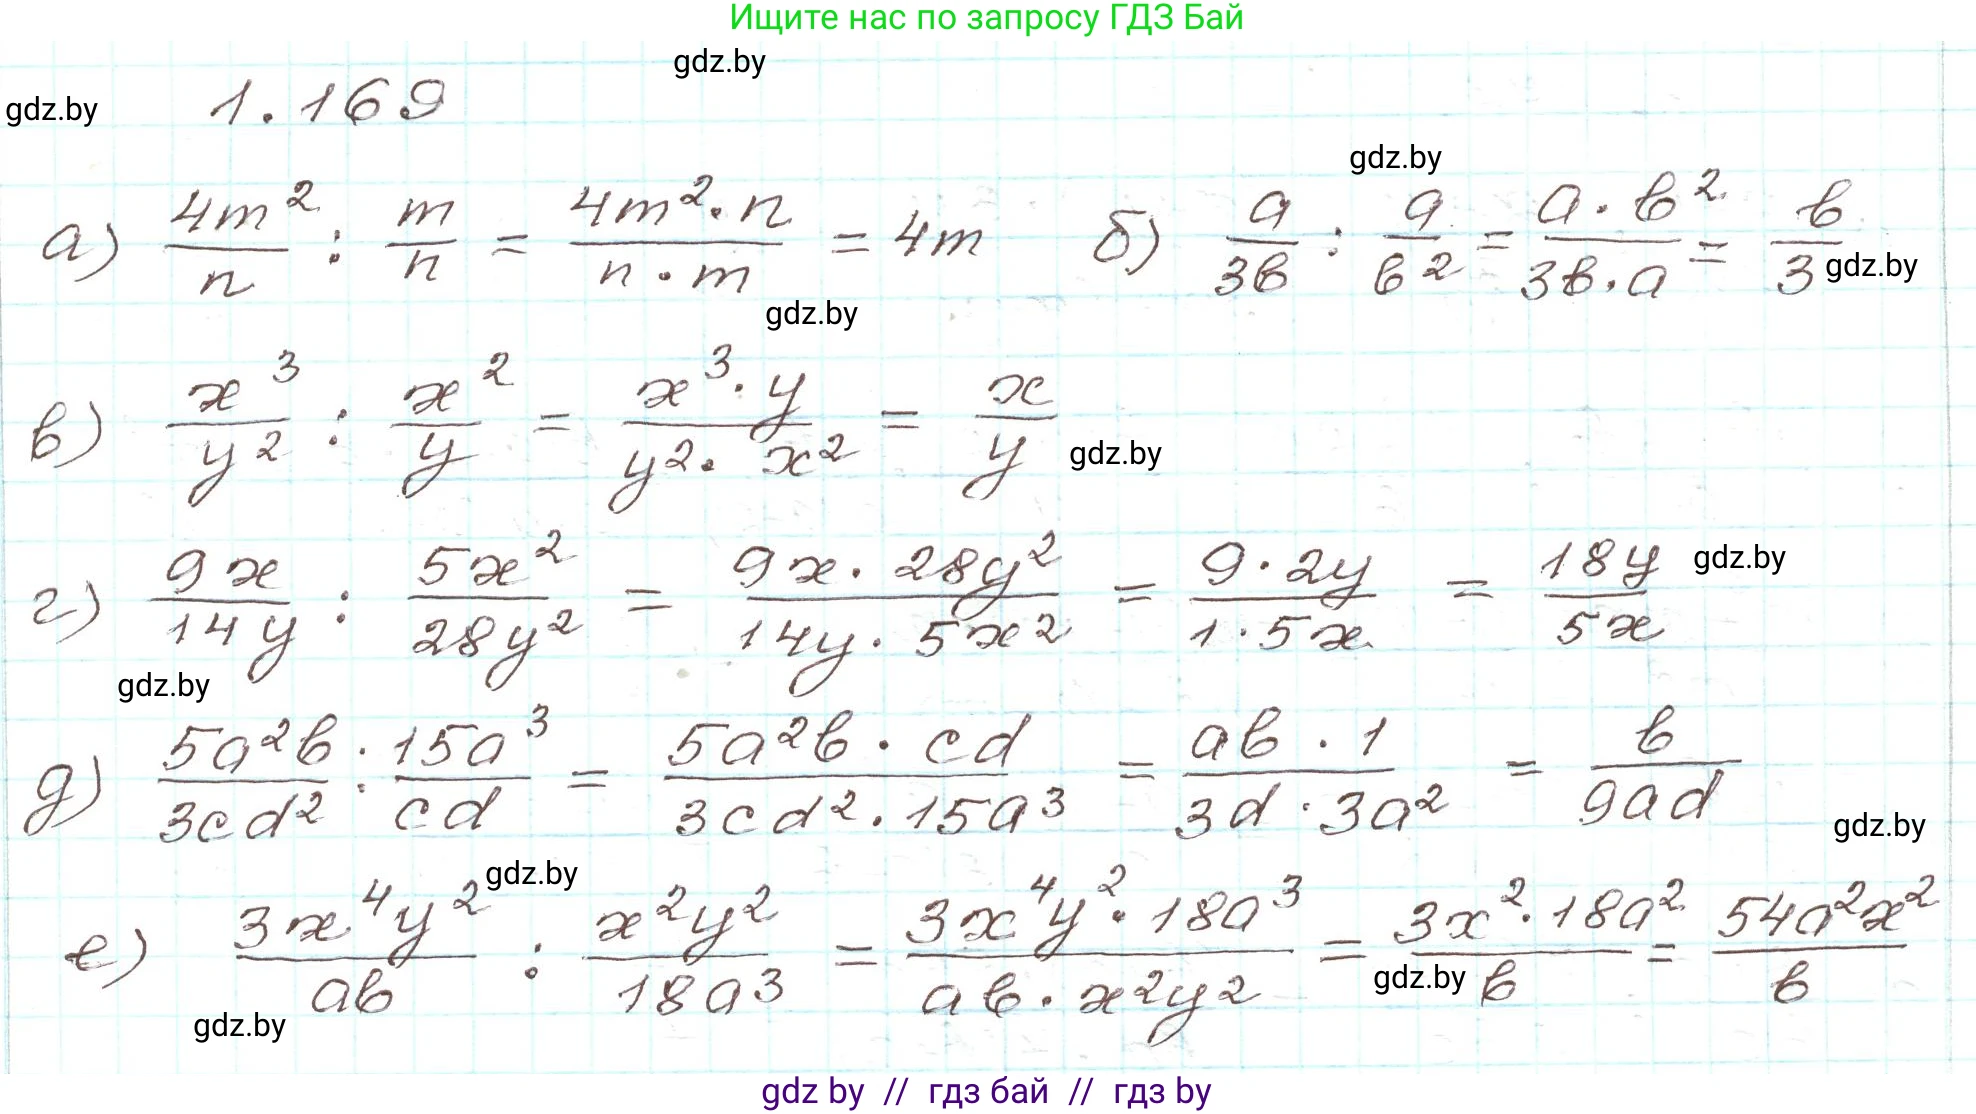 Ищите нас по запросу ГДЗ Бай
gdz.by
gdz.by
1.169
gdz.by
а) 4m²/n : m/n = 4m²·n/n·m = 4m б) a/3b : a/b² = a·b²/3b·a = b/3
gdz.by
gdz.by
в) x³/y² : x²/y = x³·y/y²·x² = x/y
gdz.by
г) 9x/14y : 5x²/28y² = 9x·28y²/14y·5x² = 9·2y/1·5x = 18y/5x
gdz.by
gdz.by
д) 5a²b/3cd² : 15a³/cd = 5a²b·cd/3cd²·15a³ = ab·1/3d·3a² = b/9ad
gdz.by
gdz.by
е) 3x⁴y²/ab : x²y²/18a³ = 3x⁴y²·18a³/ab·x²y² = 3x²·18a²/b = 54a²x²/b
gdz.by
gdz.by
gdz by // гдз бай // гдз by